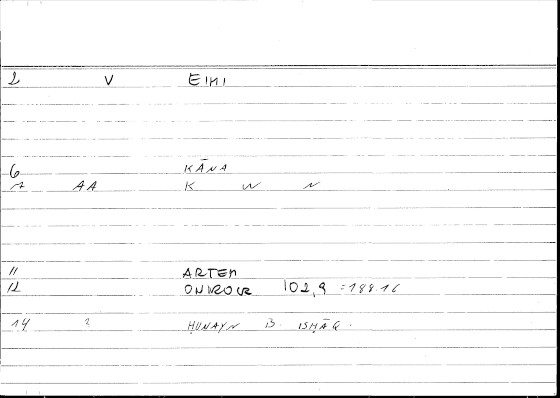 2 V EINI
6 KĀNA
7 AA K W N
11 ARTEM
12 ONIROCR 102,9 =188.16
14 2 ḤUNAYN B. ISḤĀQ.